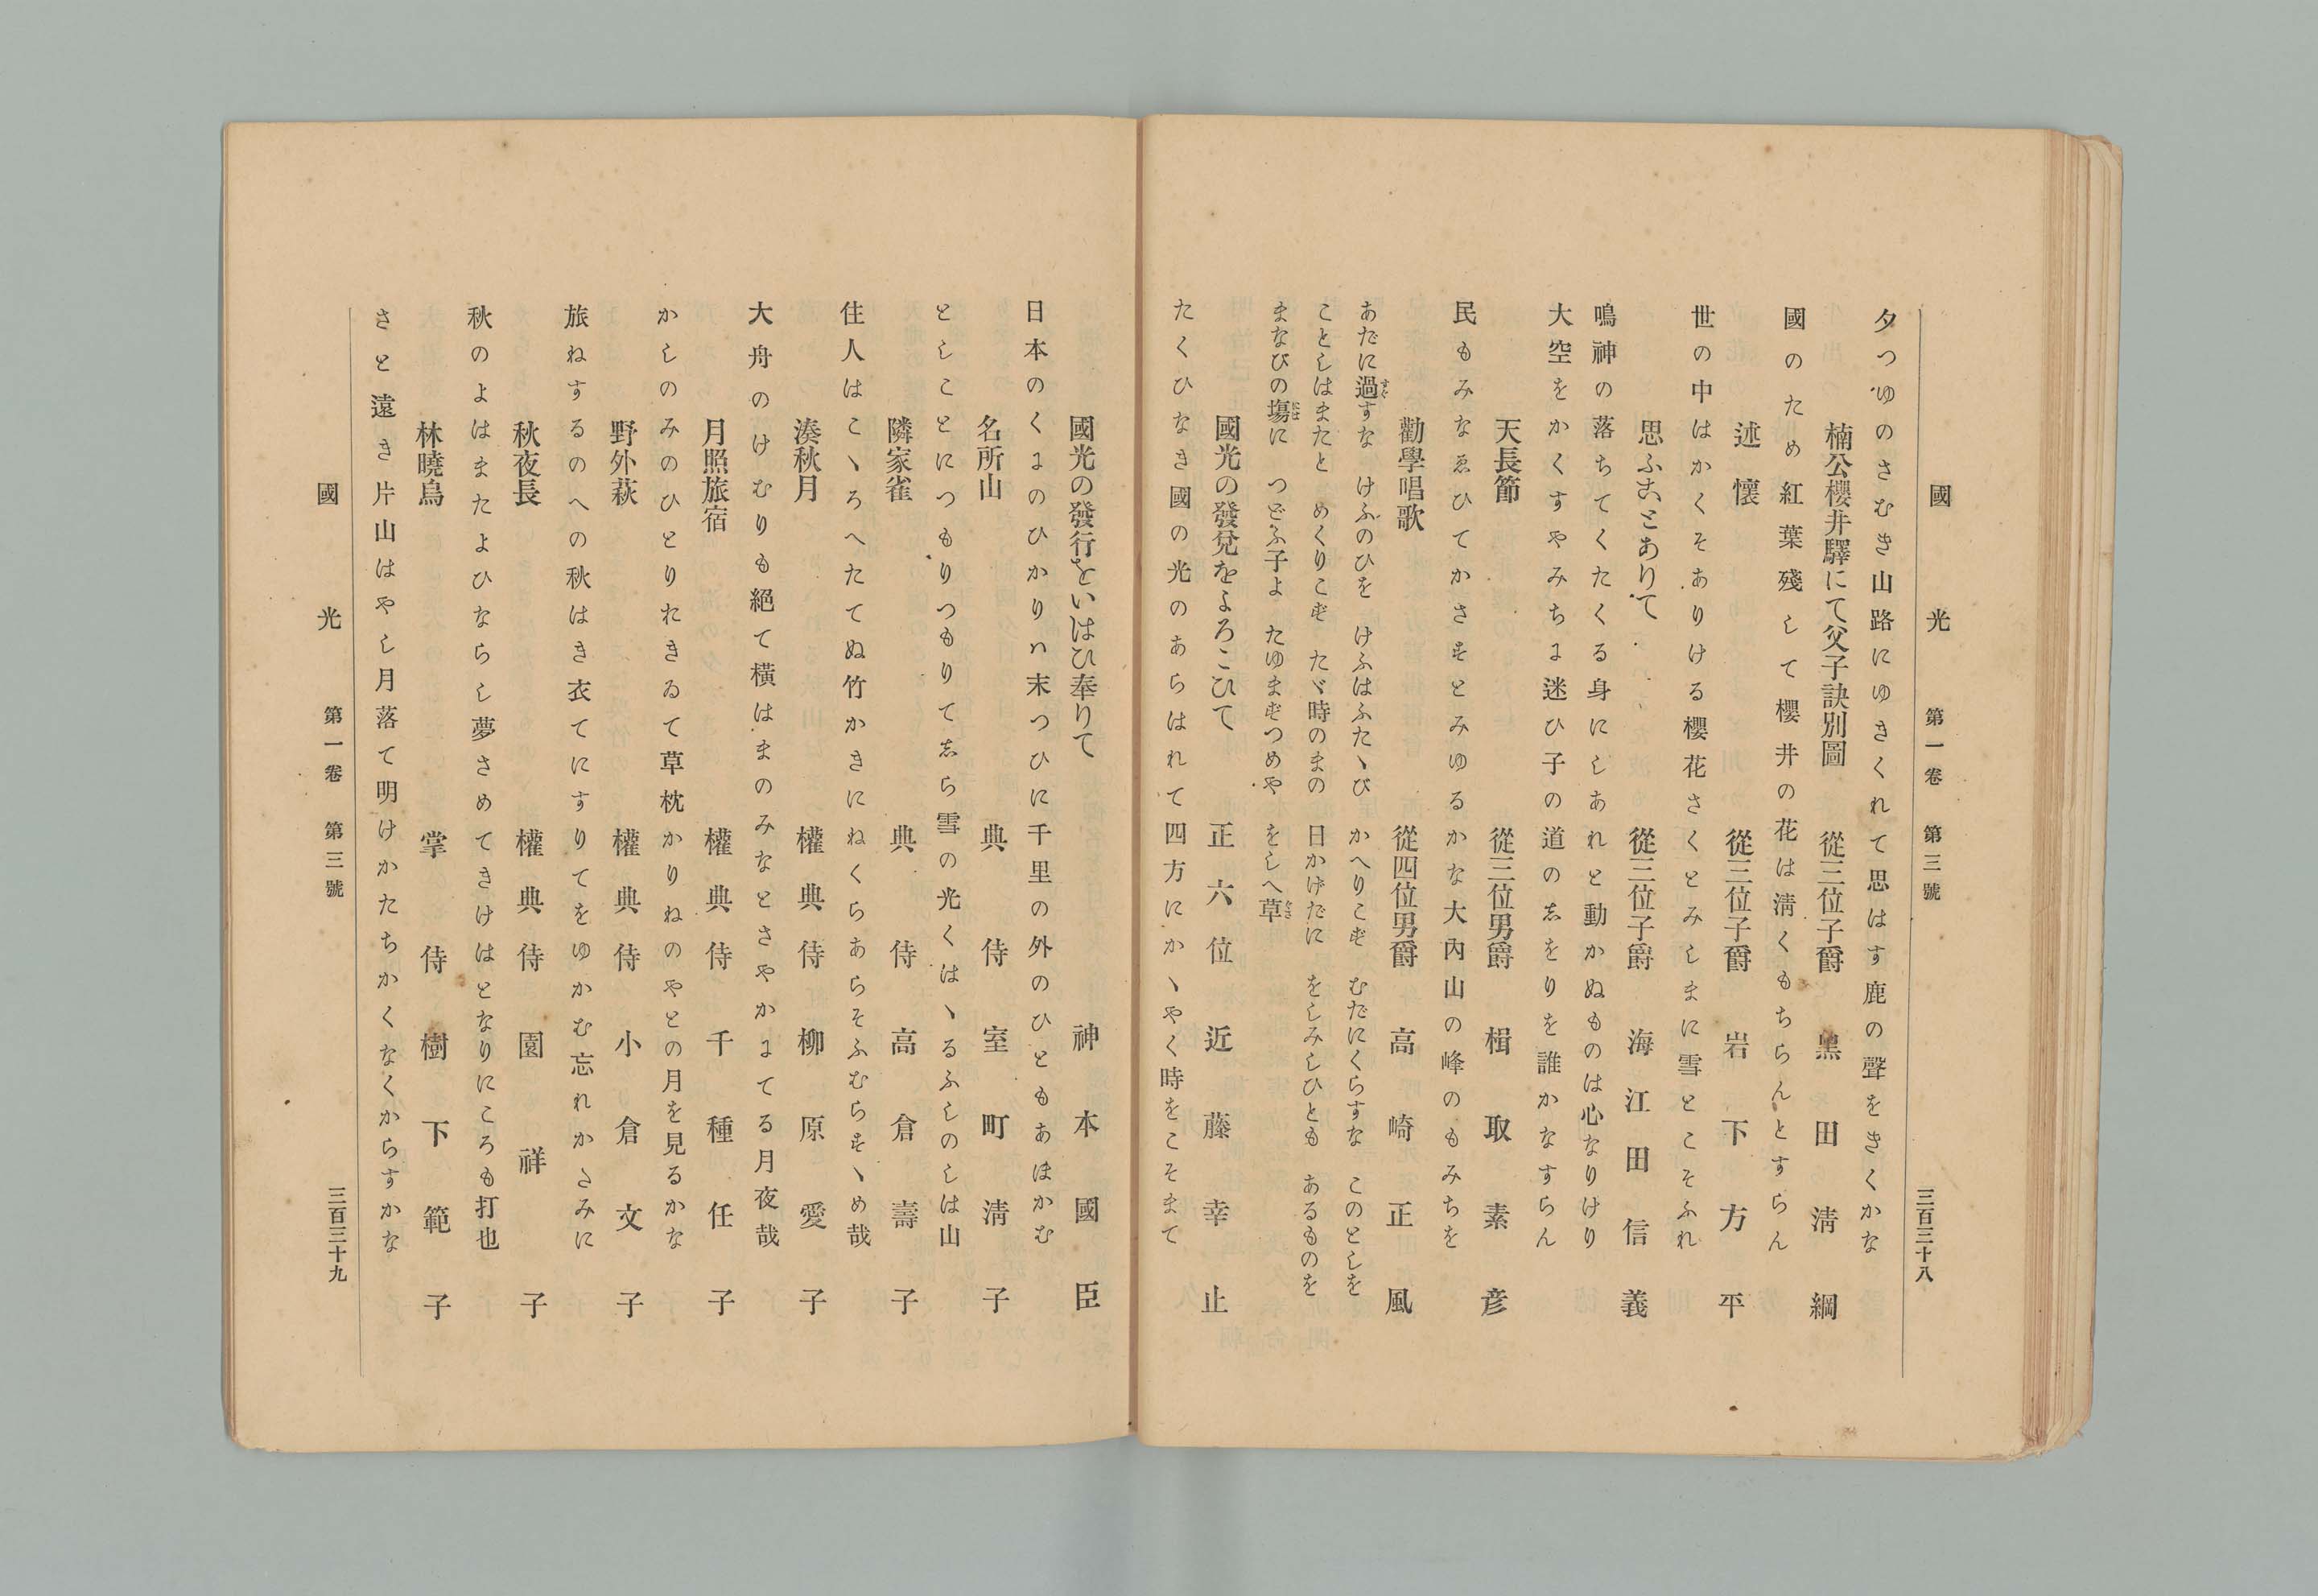 國光 第一卷 第三號 三百三十八
夕つゆのさむき山路にゆきくれて思はす鹿の聲をきくかな
楠公櫻井驛にて父子訣別圖 從三位子爵 黑田淸綱
國のため紅葉殘して櫻井の花は淸くもちらんとすらん
述懷 從三位子爵 岩下方平
世の中はかくそありける櫻花さくとみしまに雪とこそふれ
思ふことありて 從三位子爵 海江田信義
鳴神の落ちてくたくる身にしあれと動かぬものは心なりけり
大空をかくすやみちに迷ひ子の道のしをりを誰かなすらん
天長節 從三位男爵 楫取素彦
民もみなゑひてかさすとみゆるかな大內山の峰のもみちを
勸學唱歌 從四位男爵 高崎正風
あだに過すな けふのひを けふはふたゝび かへりこず むだにくらすな このとしを
ことしはまたと めくりこず たゞ時のまの 日かげだに をしみしひとも あるものを
まなびの塲に つどふ子よ たゆまずつめや をしへ草
國光の發兌をよろこひて 正六位 近藤幸止
たくひなき國の光のあらはれて四方にかゝやく時をこそまて
國光の發行をいはひ奉りて 神本國臣
日本のくにのひかりハ末つひに千里の外のひともあほかむ
名所山 典侍 室町淸子
としことにつもりつもりてしら雪の光くはゝるふしのしは山
隣家雀 典侍 高倉壽子
住人はこゝろへたてぬ竹かきにねくらあらそふむらすゝめ哉
湊秋月 權典侍 柳原愛子
大舟のけむりも絕て橫はまのみなとさやかにてる月夜哉
月照旅宿 權典侍 千種任子
かしのみのひとりれきゐて草枕かりねのやとの月を見るかな
野外萩 權典侍 小倉文子
旅ねするのへの秋はき衣てにすりてをゆかむ忘れかたみに
秋夜長 權典侍 園祥子
秋のよはまたよひならし夢さめてきけはとなりにころも打也
林曉鳥 掌侍 樹下範子
さと遠き片山はやし月落て明けかたちかくなくからすかな
國光 第一卷 第三號 三百三十九